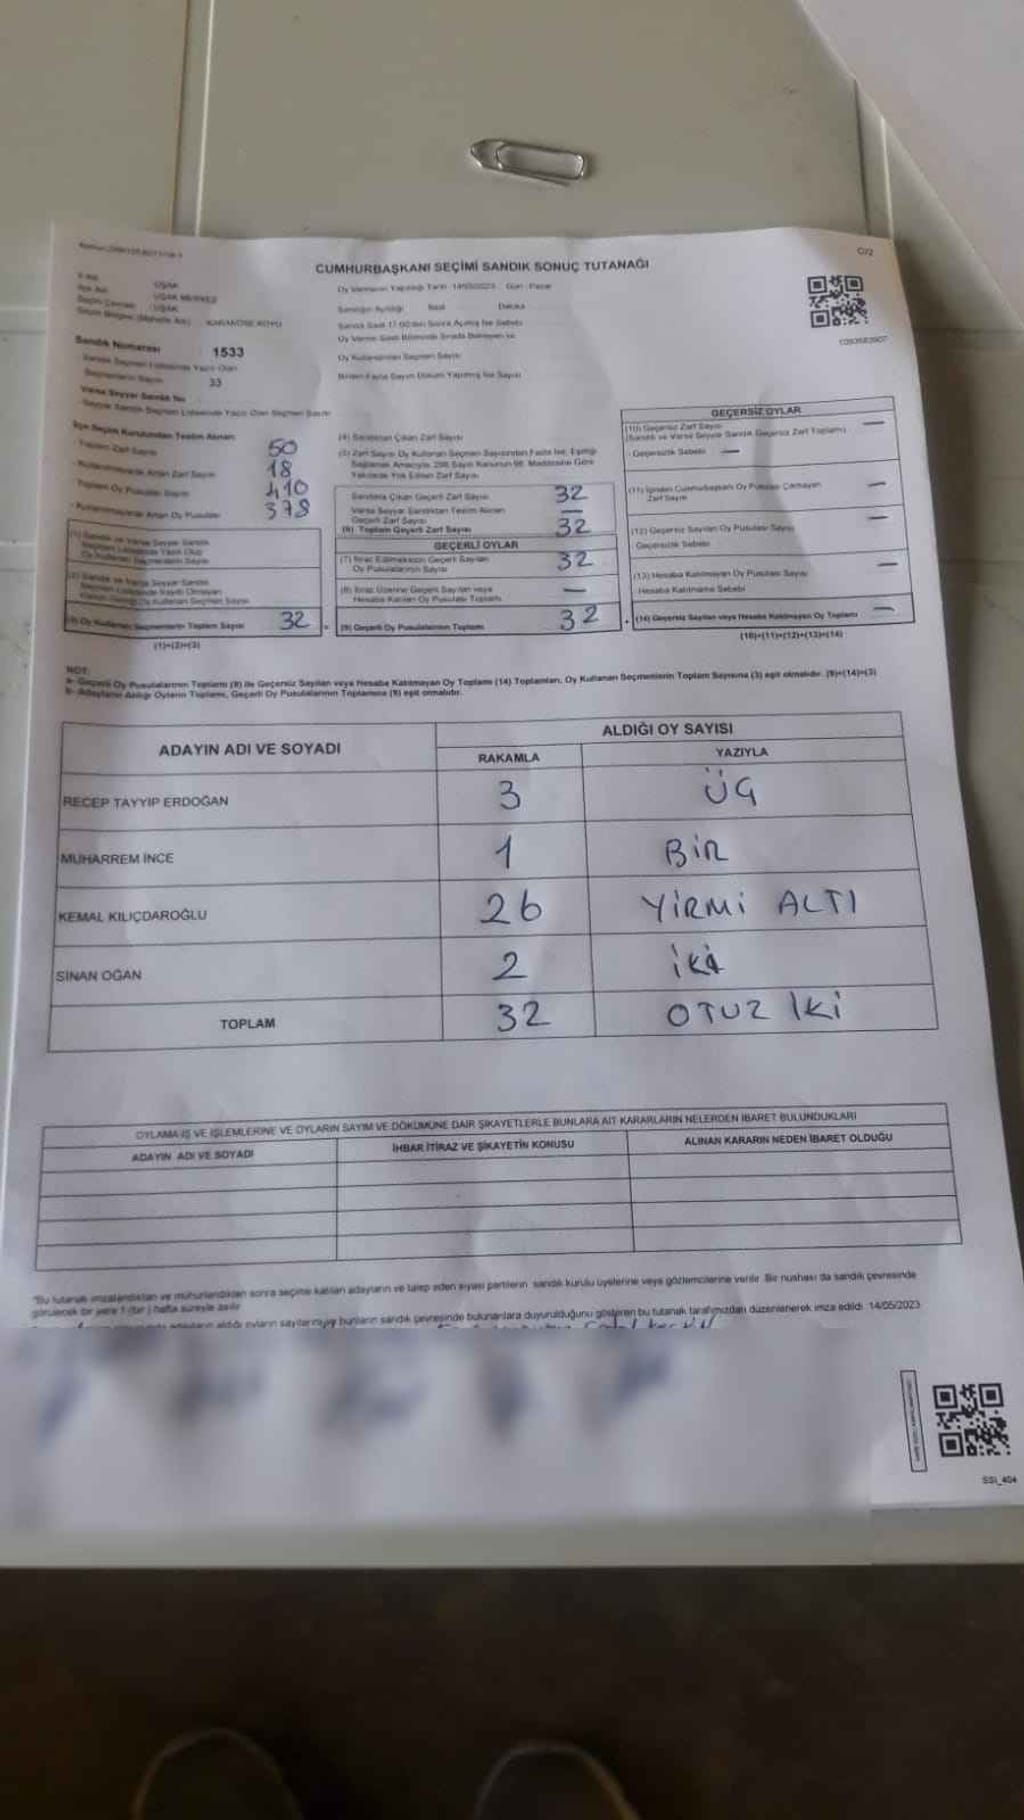 C/72
CUMHURBAŞKANI SEÇİMİ SANDIK SONUÇ TUTANAĞI
İl Adı UŞAK
İlçe Adı UŞAK MERKEZ
Seçim Çevresi UŞAK
Oy Vermenin Yapıldığı Tarih 14/05/2023 Gün Pazar
Sandığın Açıldığı Saat Dakika
Sandık Numarası 1533
33
Oy Kullanan Seçmen Sayısı
İlçe Seçim Kurulundan Teslim Alınan
Toplam Zarf Sayısı 50
Kullanılmayarak Artan Zarf Sayısı 18
Toplam Oy Pusulası Sayısı 410
Kullanılmayarak Artan Oy Pusulası 378
(3) Oy Kullanan Seçmenlerin Toplam Sayısı 32
(4) Sandıktan Çıkan Zarf Sayısı
Sandıkta Çıkan Geçerli Zarf Sayısı 32
Varsa Seyyar Sandıktan Teslim Alınan Geçerli Zarf Sayısı —
(6) Toplam Geçerli Zarf Sayısı 32
GEÇERLİ OYLAR
(7) İtiraz Edilmeksizin Geçerli Sayılan Oy Pusulalarının Sayısı 32
(8) İtiraz Üzerine Geçerli Sayılan veya Hesaba Katılan Oy Pusulası Toplamı —
(9) Geçerli Oy Pusulalarının Toplamı 32
GEÇERSİZ OYLAR
(10) Geçersiz Zarf Sayısı —
(Sandık ve Varsa Seyyar Sandık Geçersiz Zarf Toplamı)
Geçersizlik Sebebi —
(11) İçinden Cumhurbaşkanı Oy Pusulası Çıkmayan Zarf Sayısı —
(12) Geçersiz Sayılan Oy Pusulası Sayısı —
Geçersizlik Sebebi
(13) Hesaba Katılmayan Oy Pusulası Sayısı —
Hesaba Katılmama Sebebi
(14) Geçersiz Sayılan veya Hesaba Katılmayan Oy Toplamı —
NOT:
a- Geçerli Oy Pusulalarının Toplamı (9) ile Geçersiz Sayılan veya Hesaba Katılmayan Oy Toplamı (14) Toplamları, Oy Kullanan Seçmenlerin Toplam Sayısına (3) eşit olmalıdır. (9)+(14)=(3)
b- Adayların Aldığı Oyların Toplamı, Geçerli Oy Pusulalarının Toplamına (9) eşit olmalıdır.
ADAYIN ADI VE SOYADI
ALDIĞI OY SAYISI
RAKAMLA YAZIYLA
RECEP TAYYİP ERDOĞAN 3 ÜÇ
MUHARREM İNCE 1 BİR
KEMAL KILIÇDAROĞLU 26 YİRMİ ALTI
SİNAN OĞAN 2 İKİ
TOPLAM 32 OTUZ İKİ
OYLAMA İŞ VE İŞLEMLERİNE VE OYLARIN SAYIM VE DÖKÜMÜNE DAİR ŞİKAYETLERLE BUNLARA AİT KARARLARIN NELERDEN İBARET BULUNDUKLARI
ADAYIN ADI VE SOYADI İHBAR İTİRAZ VE ŞİKAYETİN KONUSU ALINAN KARARIN NEDEN İBARET OLDUĞU
"Bu tutanak imzalandıktan ve mühürlendikten sonra seçime katılan adayların ve talep eden siyasi partilerin sandık kurulu üyelerine veya gözlemcilerine verilir. Bir nüshası da sandık çevresinde
görülecek bir yere 1 (bir) hafta süreyle asılır.
adayların aldığı oyların sayılarını bunların sandık çevresinde bulunanlara duyurulduğunu gösteren bu tutanak tarafımızdan düzenlenerek imza edildi. 14/05/2023
SSI_404